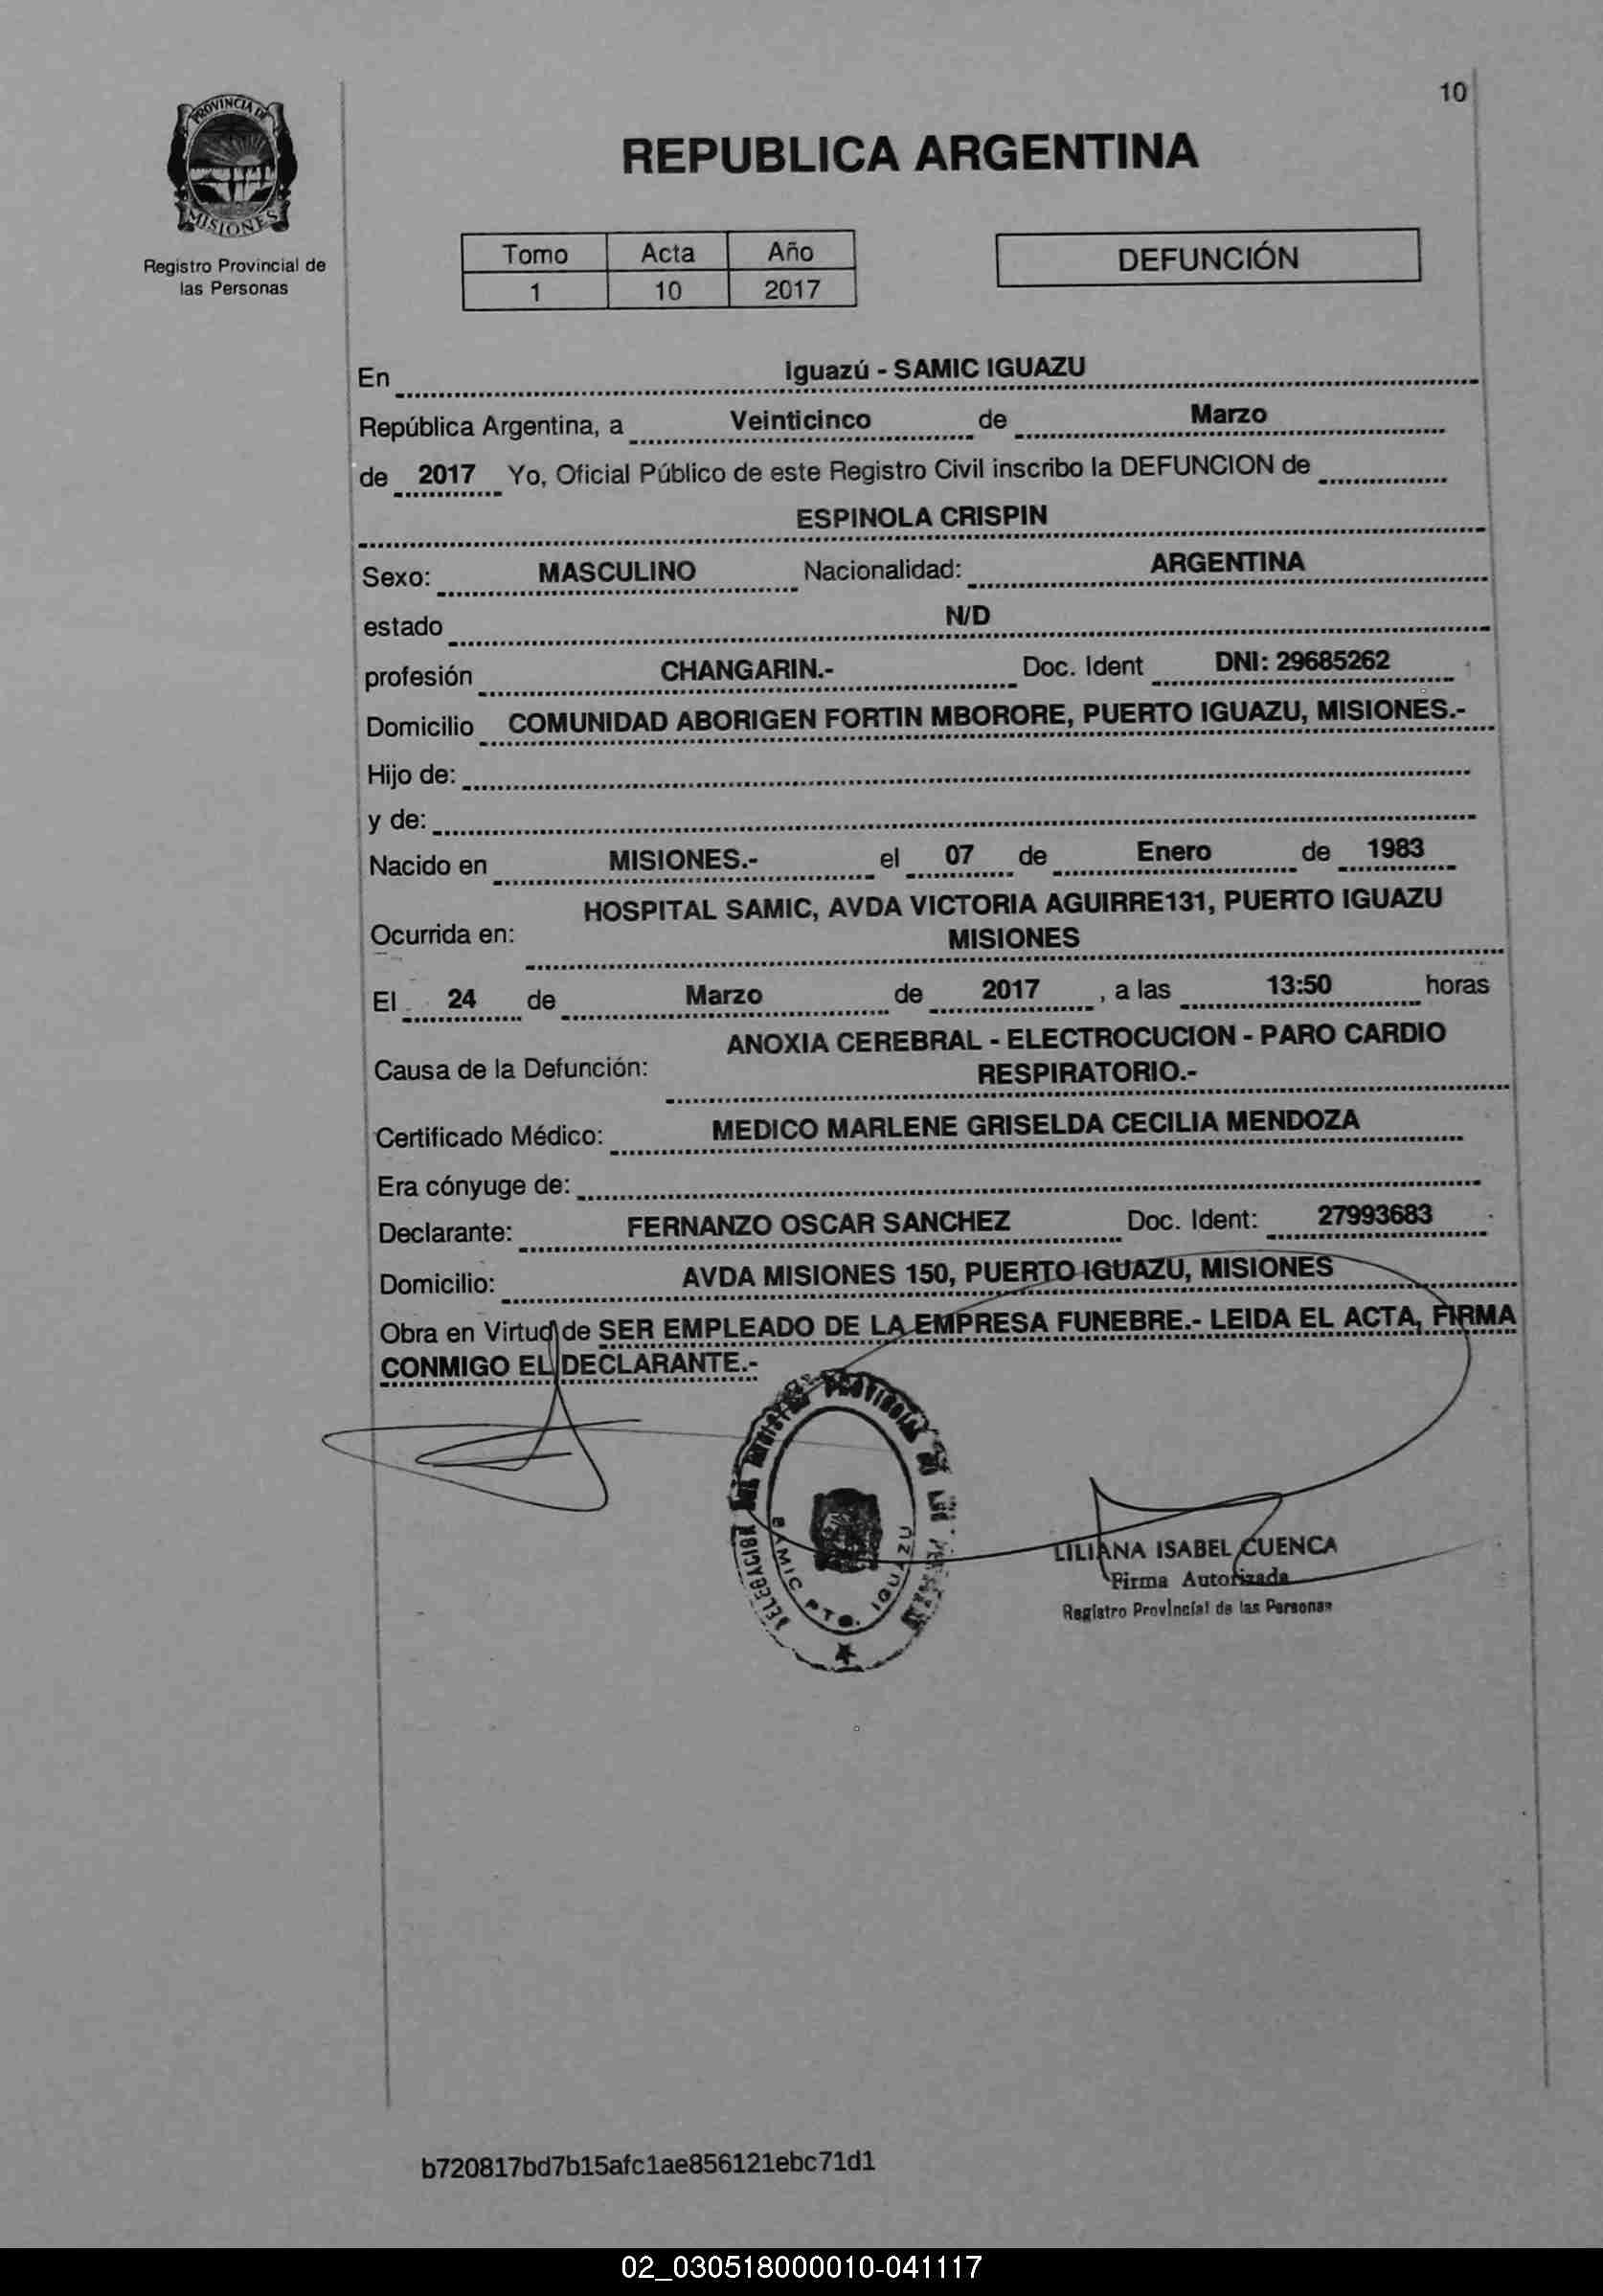 10
PROVINCIA DE
MISIONES
Registro Provincial de
las Personas
REPUBLICA ARGENTINA
Tomo Acta Año
1 10 2017
DEFUNCIÓN
En Iguazú - SAMIC IGUAZU
República Argentina, a Veinticinco de Marzo
de 2017 Yo, Oficial Público de este Registro Civil inscribo la DEFUNCION de
ESPINOLA CRISPIN
Sexo: MASCULINO Nacionalidad: ARGENTINA
estado N/D
profesión CHANGARIN.- Doc. Ident DNI: 29685262
Domicilio COMUNIDAD ABORIGEN FORTIN MBORORE, PUERTO IGUAZU, MISIONES.-
Hijo de:
y de:
Nacido en MISIONES.- el 07 de Enero de 1983
HOSPITAL SAMIC, AVDA VICTORIA AGUIRRE131, PUERTO IGUAZU
Ocurrida en: MISIONES
El 24 de Marzo de 2017 , a las 13:50 horas
ANOXIA CEREBRAL - ELECTROCUCION - PARO CARDIO
Causa de la Defunción: RESPIRATORIO.-
Certificado Médico: MEDICO MARLENE GRISELDA CECILIA MENDOZA
Era cónyuge de:
Declarante: FERNANZO OSCAR SANCHEZ Doc. Ident: 27993683
Domicilio: AVDA MISIONES 150, PUERTO IGUAZU, MISIONES
Obra en Virtud de SER EMPLEADO DE LA EMPRESA FUNEBRE.- LEIDA EL ACTA, FIRMA
CONMIGO EL DECLARANTE.-
DELEGACION DEL REGISTRO PROVINCIAL DE LAS
SAMIC PTO. IGUAZU
LILIANA ISABEL CUENCA
Firma Autorizada
Registro Provincial de las Personas
b720817bd7b15afc1ae856121ebc71d1
02_030518000010-041117